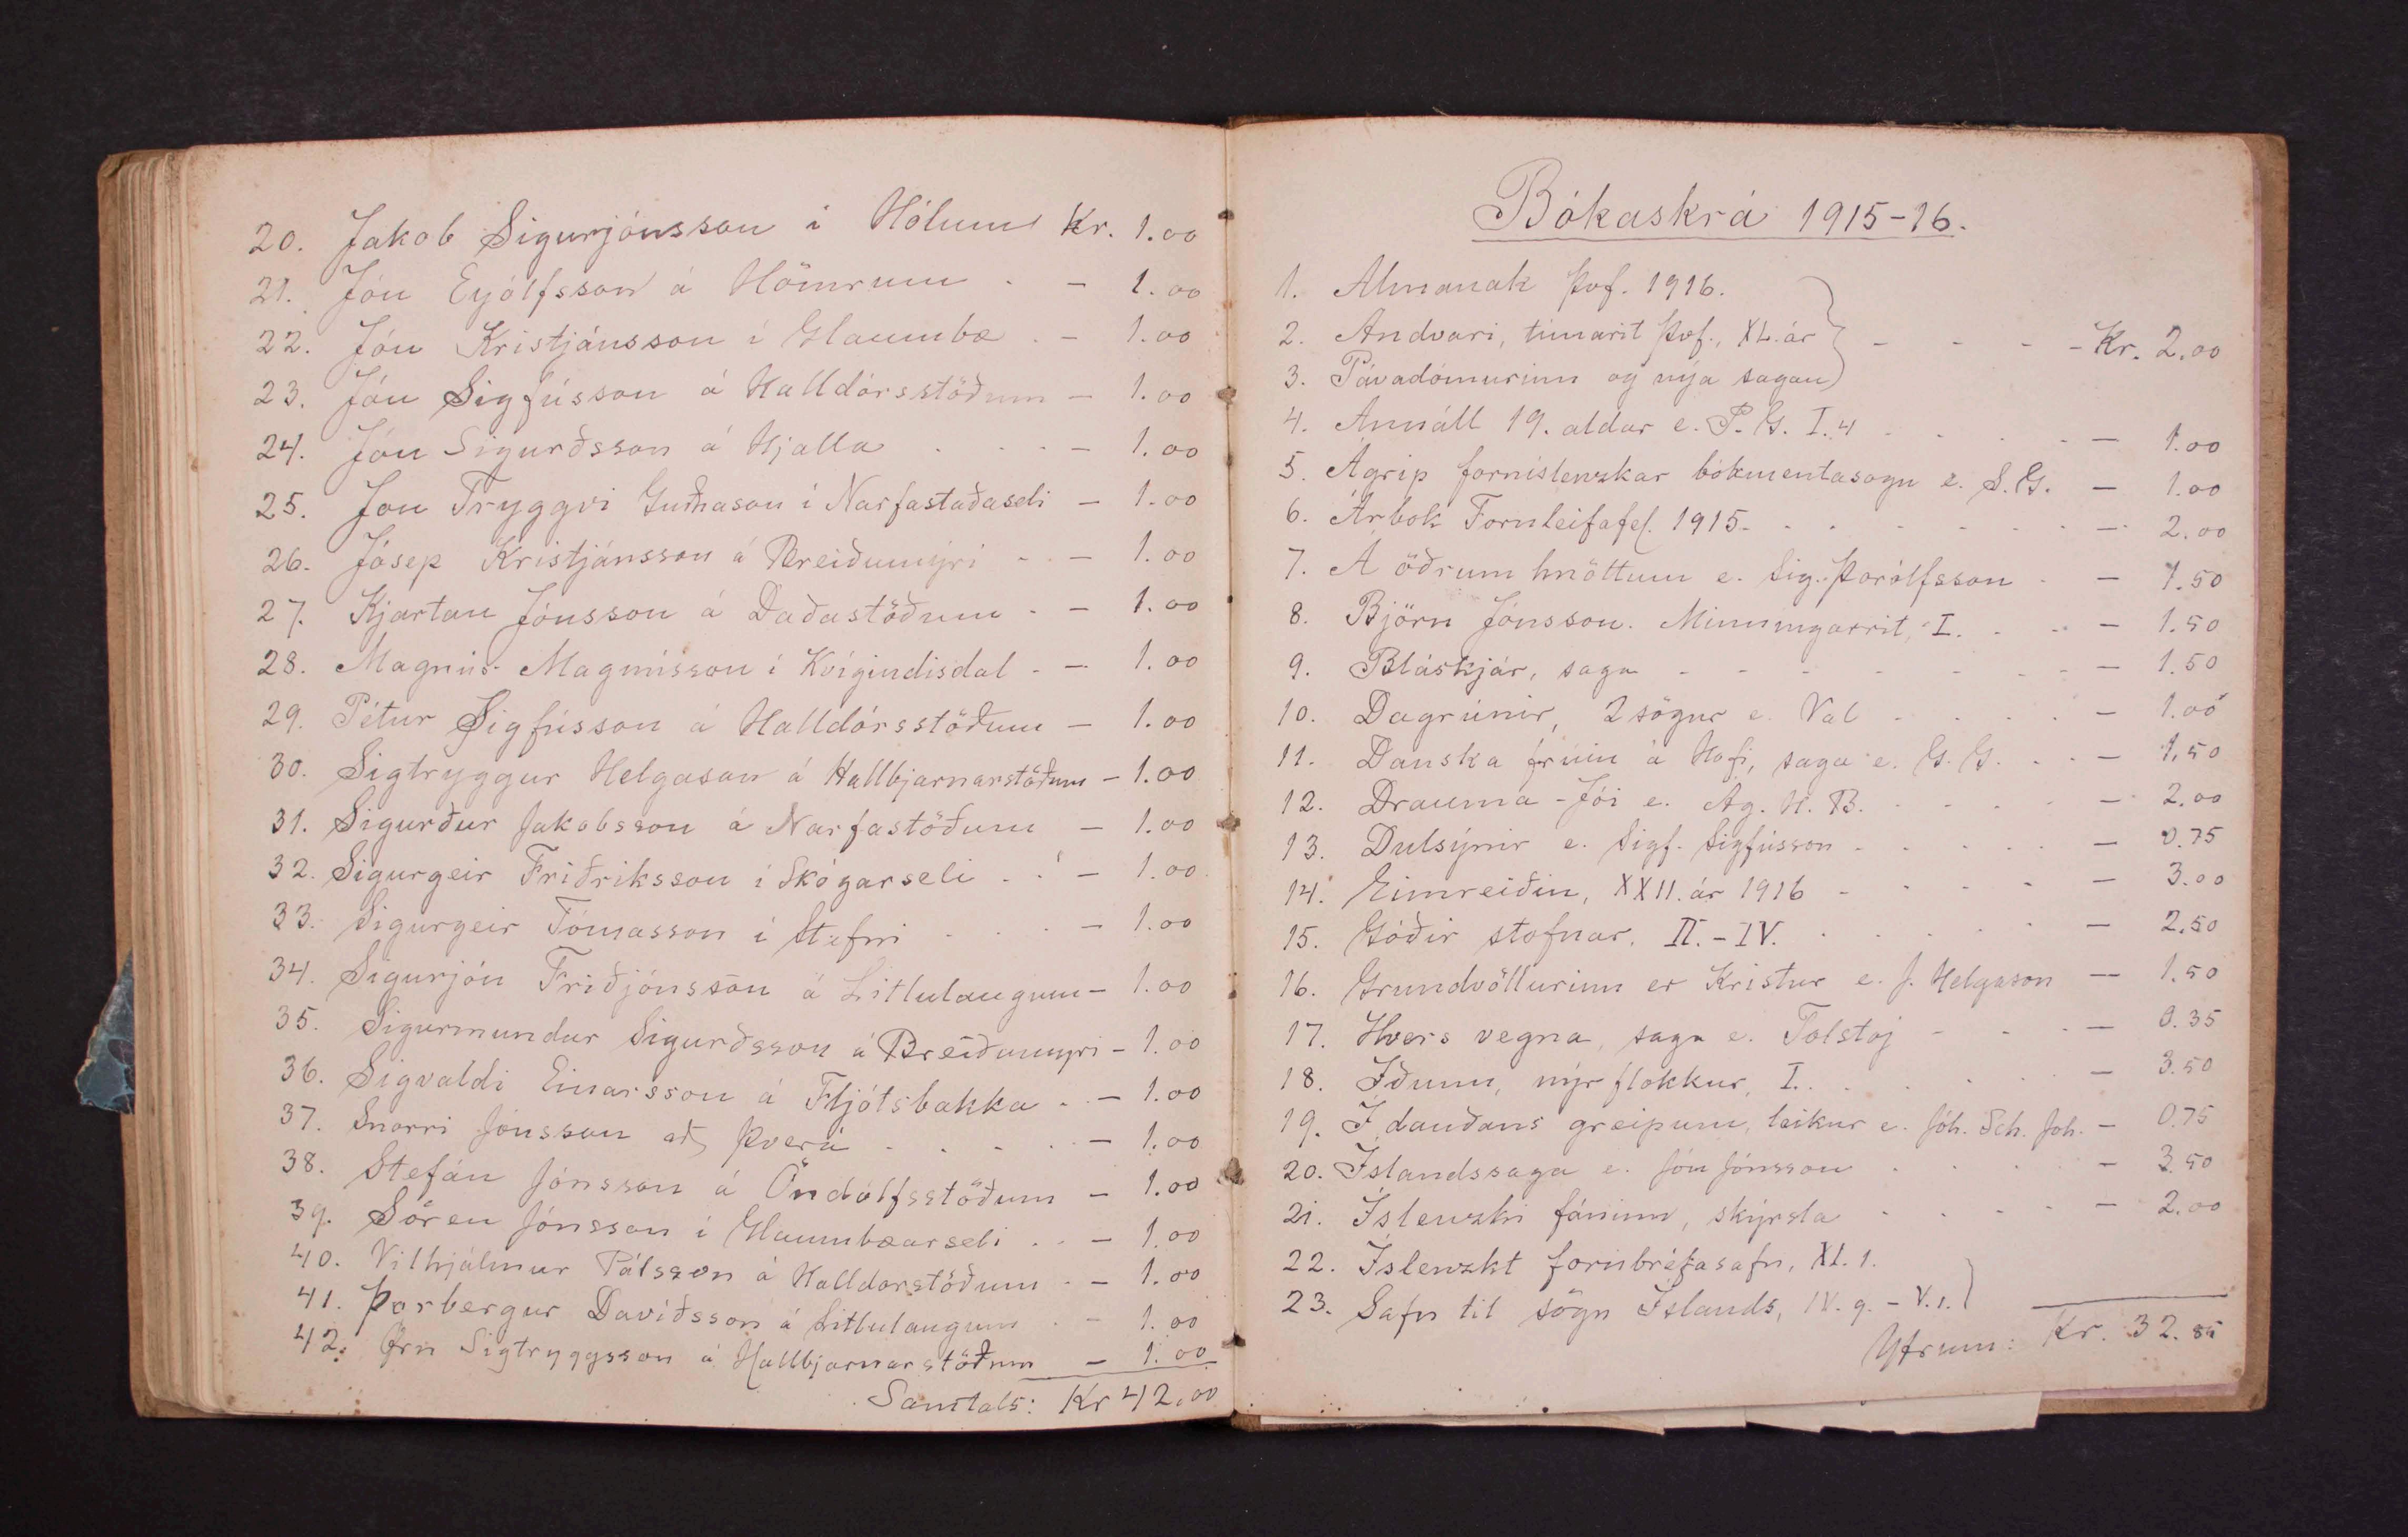 20. Jakob Sigurjónsson í Hólum Kr. 1.00
21. Jón Eyólfsson á Hömrum . - 1.00
22. Jón Kristjánsson í Glaumbæ . - 1.00
23. Jón Sigfússon á Halldórsstöðum - 1.00
24. Jón Sigurðsson á Hjalla . . . - 1.00
25. Jón Tryggvi Guðnason í Narfastaðaseli - 1.00
26. Jósep Kristjánsson á Breiðumýri . . - 1.00
27. Kjartan Jónsson á Daðastöðum . - 1.00
28. Magnús Magnússon í Kvígindisdal . - 1.00
29. Pétur Sigfússon á Halldórsstöðum - 1.00
30. Sigtryggur Helgason á Hallbjarnarstöðum - 1.00
31. Sigurður Jakobsson á Narfastöðum - 1.00
32. Sigurgeir Friðriksson í Skógarseli . . - 1.00
33. Sigurgeir Tómasson í Stafni . . . - 1.00
34. Sigurjón Friðjónsson á Litlulaugum - 1.00
35. Sigurmundur Sigurðsson á Breiðumýri - 1.00
36. Sigvaldi Einarsson á Fljótsbakka . . - 1.00
37. Snorri Jónsson að Þverá . . . . - 1.00
38. Stefán Jónsson á Öndólfsstöðum - 1.00
39. Sören Jónsson í Glaumbæarseli . . - 1.00
40. Vilhjálmur Pálsson á Halldorstöðum . - 1.00
41. Þorbergur Davíðsson á Litlulaugum . - 1.00
42. Örn Sigtryggsson á Hallbjarnarstöðum - 1.00
Samtals: Kr 42.00
Bókaskrá 1915-16.
1. Almanak Þvf. 1916.
2. Andvari, tímarit Þvf., XL. ár - - - - Kr. 2.00
3. Pávadómurinn og nýja sagan
4. Annáll 19. aldar e. P. G. I. 4 . . . . - 1.00
5. Ágrip forníslenzkar bókmentasögu e. S. G. - 1.00
6. Árbók Fornleifafél. 1915 . . . . . . - 2.00
7. Á öðrum hnöttum e. Sig. Þórólfsson . - 1.50
8. Björn Jónsson. Minningarrit, I. . . - 1.50
9. Bláskjár, saga - - - - - - - - 1.50
10. Dagrúnir, 2 sögur e. Val . . . . - 1.00
11. Danska frúin á Hofi, saga e. G. G. . . - 1,50
12. Drauma-Jói e. Ág. H. B. . . . . - 2.00
13. Dulsýnir e. Sigf. Sigfússon . . . . . - 0.75
14. Eimreiðin, XXII. ár 1916 . . . . - 3.00
15. Góðir stofnar. II. - IV. . . . . . - 2.50
16. Grundvöllurinn er Kristur e. J. Helgason - 1.50
17. Hvers vegna, saga e. Tolstoj . . . - 0.35
18. Iðunn, nýr flokkur, I. . . . . - 3.50
19. Í dauðans greipum, leikur e. Jóh. Sch. Joh. - 0.75
20. Íslandssaga e. Jón Jónsson . . . . - 3.50
21. Íslenzki fáninn, skýrsla . . . . - 2.00
22. Íslenzkt fornbréfasafn, XI. 1.
23. Safn til sögu Íslands, IV. 9. - V. 1.
Yfrum: Kr. 32.85